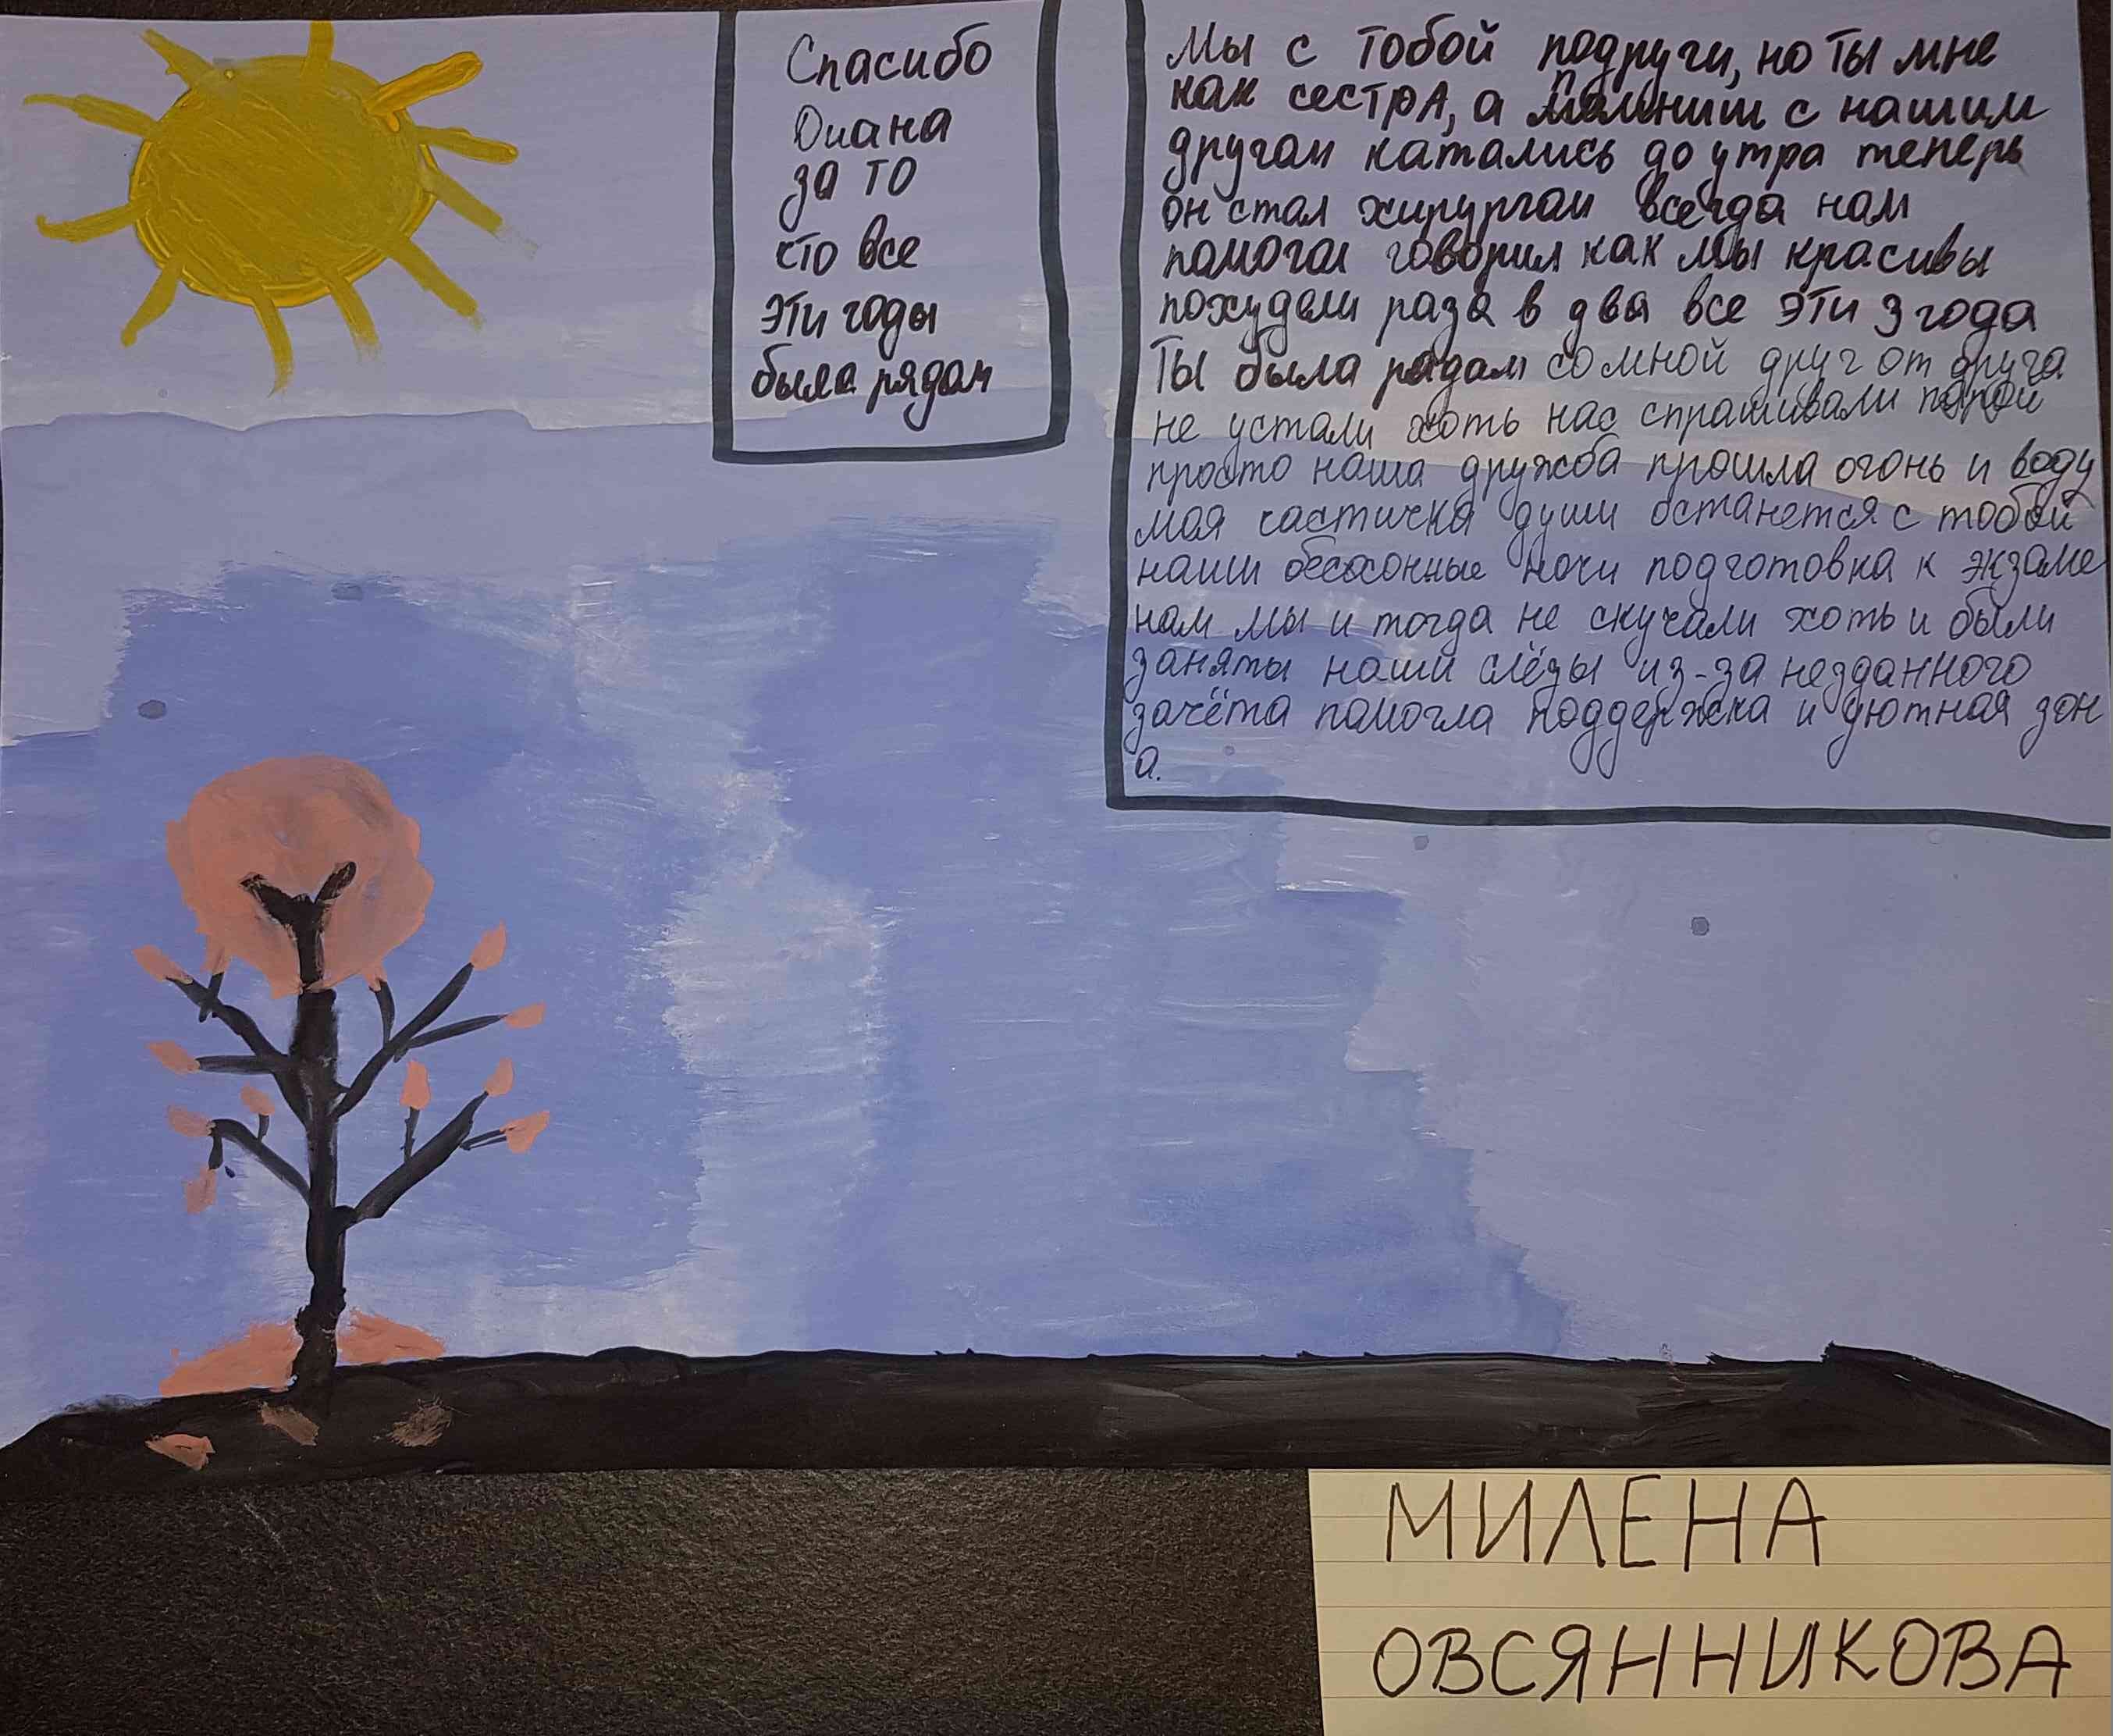 Спасибо
Диана
за то
что все
эти годы
была рядом
Мы с тобой подруги, но ты мне
как сестрА, а помниш с нашим
другом катались до утра теперь
он стал хирургом всегда нам
помогал говорил как мы красивы
похудели раза в два все эти 3 года
Ты была рядом со мной друг от друга
не устали хоть нас спрашивали порой
просто наша дружба прошла огонь и воду
моя частичка души останется с тобой
наши бессонные ночи подготовка к экзаме
нам мы и тогда не скучали хоть и были
заняты наши слёзы из-за незданного
зачёта помогла поддержка и уютная зон
а.
МИЛЕНА
ОВСЯННИКОВА